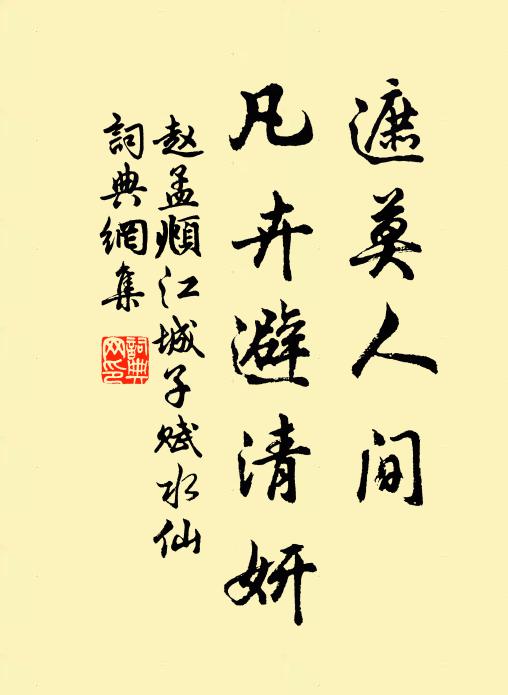 遮莫人间
凡卉避清妍
赵孟頫江城子赋水仙
詞典網集
詞典
网印